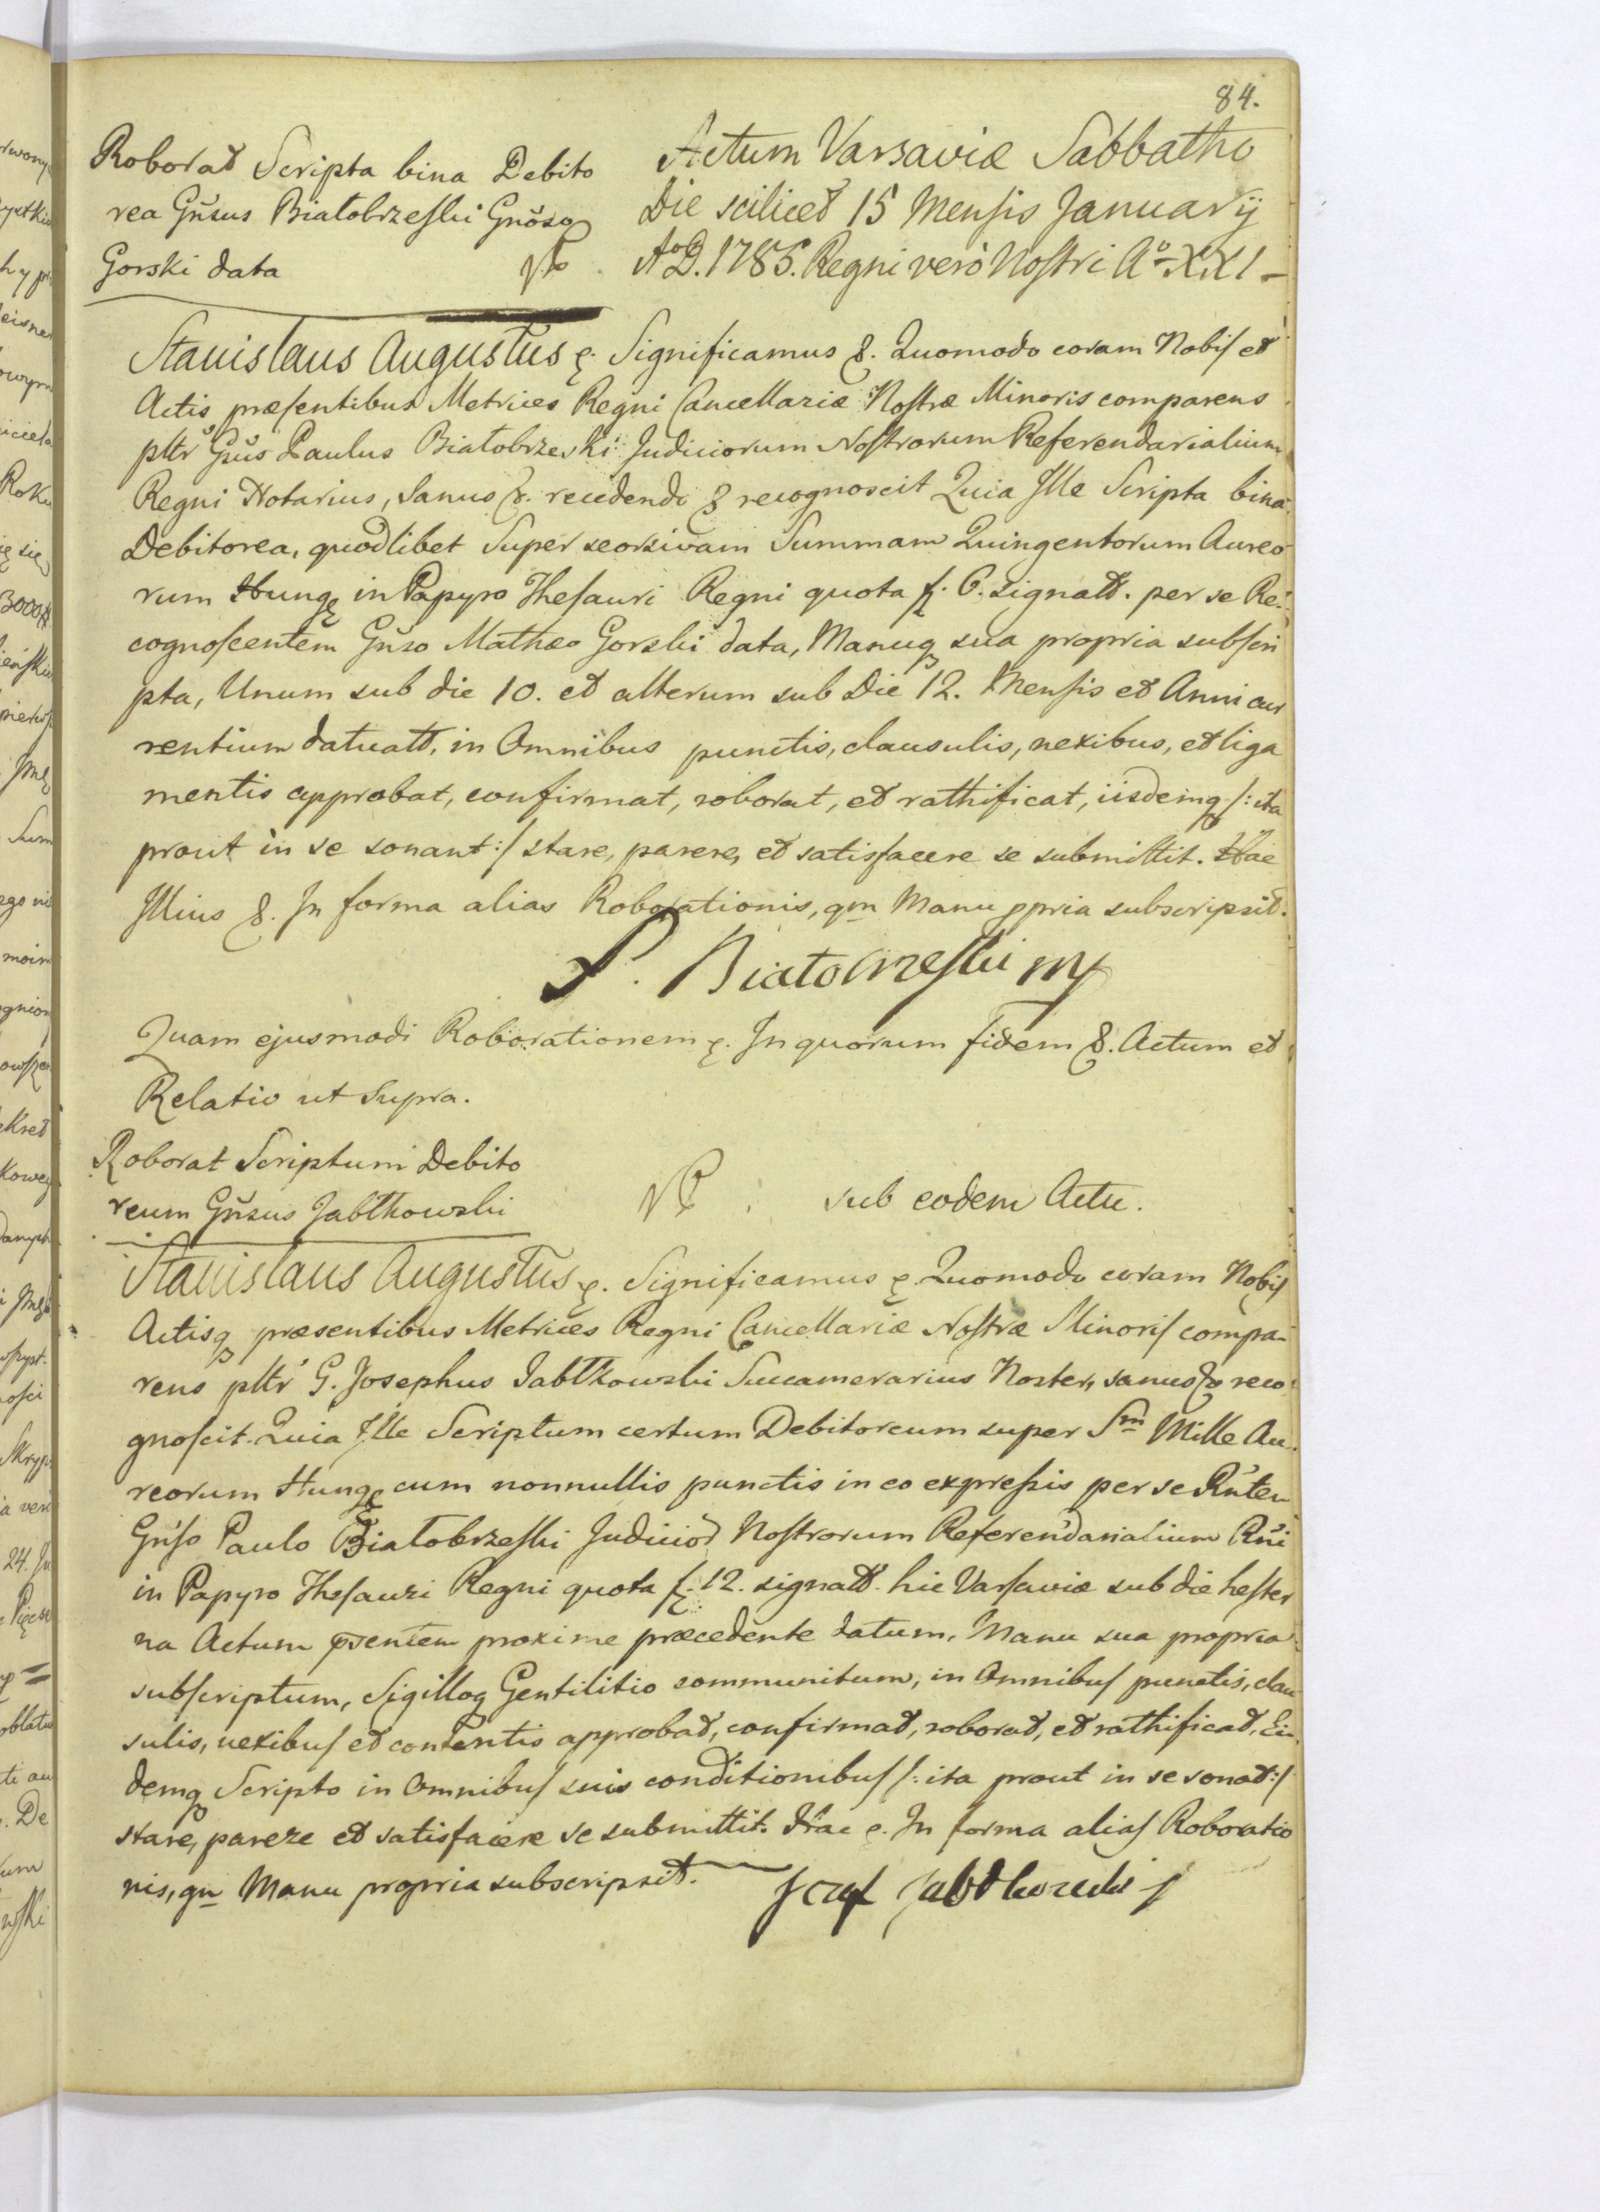 84.
Roborat Scripta bina Debito
rea Gnsus Białobrzeski Gnoso
Gorski data
Actum Varsaviæ Sabbatho
Die scilicet 15 Mensis January
AoD. 1785. Regni vero Nostri Ao XXI
Stanislaus Augustus &. Significamus &. Quomodo coram Nobis et
Actis præsentibus Metrices Regni Cancellariæ Nostræ Minoris comparens
pltr Gnus Paulus Białobrzeski Judiciorum Nostrorum Referendarialium
Regni Notarius, Sanus &. recedendo & recognoscit Quia Ille Scripta bina
Debitorea, quodlibet Super seorsivam Summam Quingentorum Aureo
rum Hung in Papyro Thesauri Regni quota f. 6. signatt. per se Re
cognoscentem Gnso Mathæo Gorski data, Manuq sua propria subscri
pta, Unum sub die 10. et alterum sub Die 12. Mensis et Anni cur
rentium datuatt, in Omnibus punctis, clausulis, nexibus, et liga
mentis approbat, confirmat, roborat, et rathificat, iisdemq /: ita
prout in se sonant :/ stare, parere, et satisfacere se submittit. Hac
Illius &. In forma alias Roborationis, qm Manu ppria subscripsit.
P. Białobrzeski mp
Quam ejusmodi Roborationem &. In quorum fidem &. Actum et
Relatio ut Supra.
Roborat Scriptum Debito
reum Gnsus Jabłkowski
sub eodem Actu.
Stanislaus Augustus &. Significamus & Quomodo coram Nobis
Actisq præsentibus Metrices Regni Cancellariæ Nostræ Minoris compa-
rens pltr G. Josephus Jabłkowski Succamerarius Noster, sanus & reco
gnoscit. Quia Ille Scriptum certum Debitoreum super Sm Mille Au-
reorum Hung cum nonnullis punctis in eo expressis per se Rnten
Gnso Paulo Białobrzeski Judicior Nostrorum Referendarialium Rni
in Papyro Thesauri Regni quota f. 12. signatt. hic Varsaviæ sub die hester
na Actum psentem proxime præcedente datum, Manu sua propria
subscriptum, Sigilloq Gentilitio communitum, in Omnibus punctis, clau
sulis, nexibus et contentis approbat, confirmat, roborat, et rathificat, Ei-
demq Scripto in Omnibus suis conditionibus /: ita prout in se sonat :/
stare, parere et satisfacere se submittit. Hac &. In forma alias Roboratio
nis, qm Manu propria subscripsit.
Jozef Jabłkowski